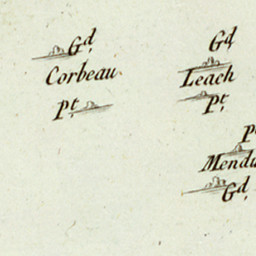 Gd,
Corbeau
Pt,
Gd,
Leach
Pt,
Gd,